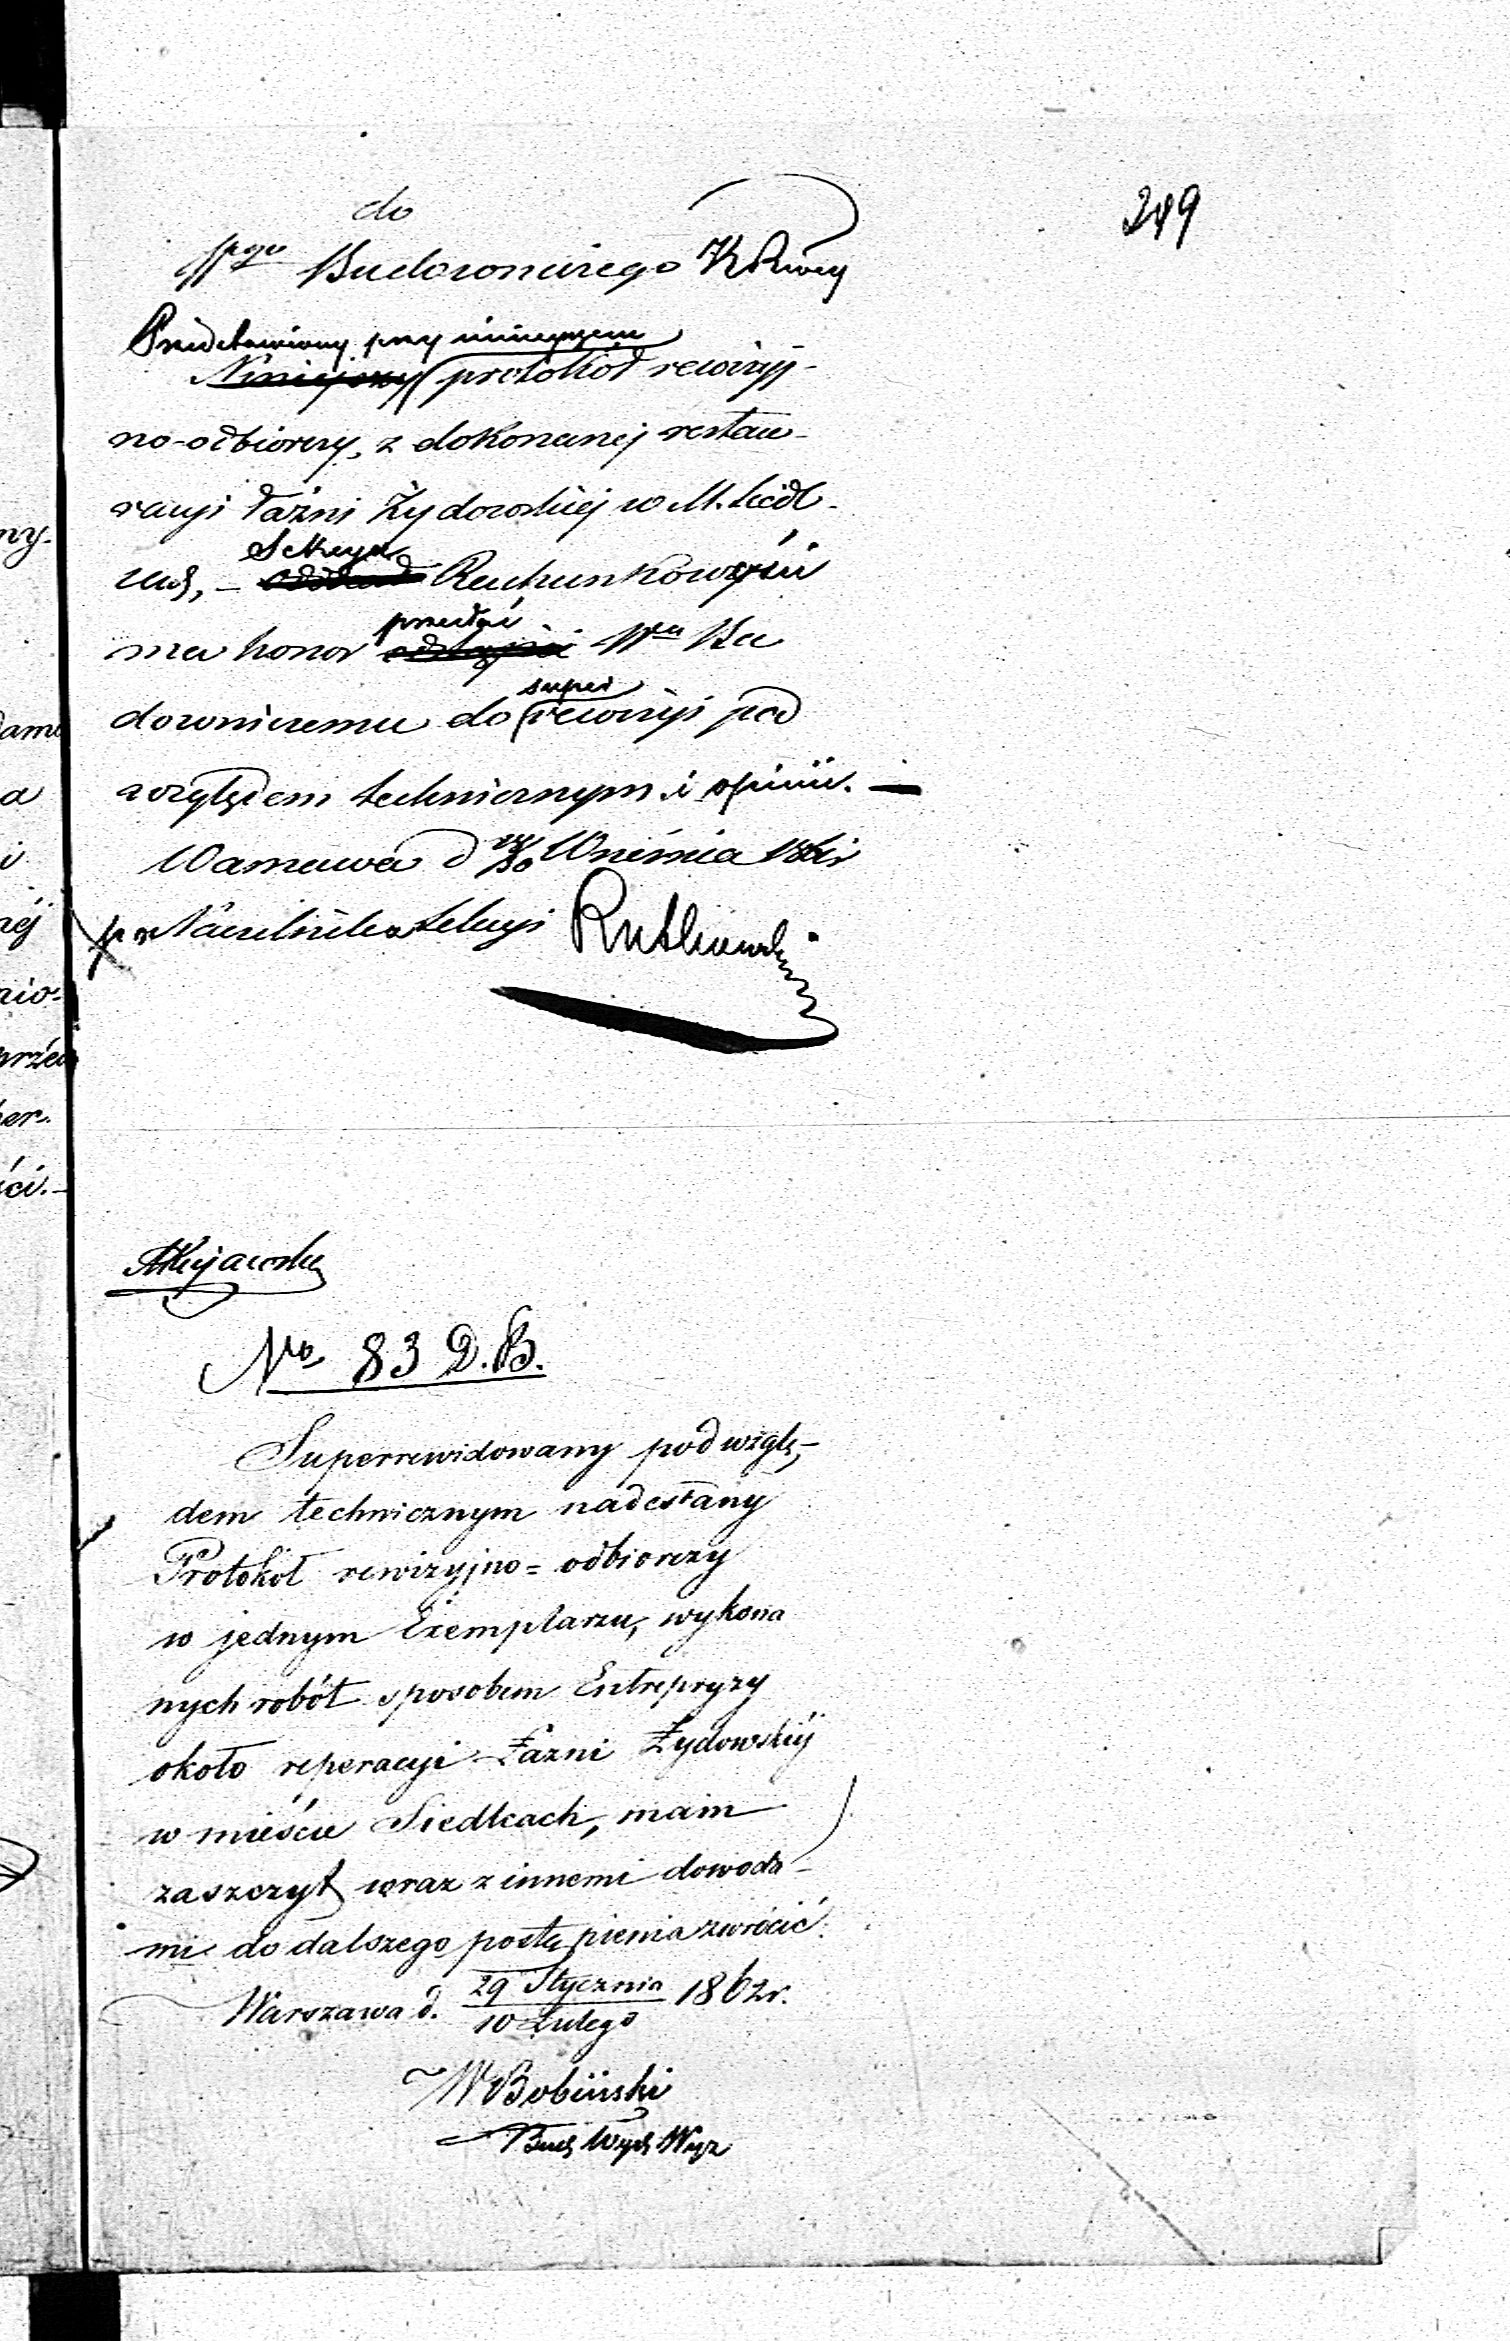 249
do
Wgo Budowniczego
Przedstawiony przy niniejszem
Niniejszy protokół rewizyj-
no-odbiorczy, z dokonanej restau-
racyi Łaźni Żydowskiej w M. Siedl-
cach, – Sekcya Rachunkowości
ma honor przesłać Wu Bu
downiczemu do super rewizyi pod
względem technicznym i opinii. –
Warszawa d 18/30 Września 1861 r
Naczelnika Sekcyi Rutkowski
AKujawski
No 83 D.B.
Superrewidowany pod wzglę-
dem technicznym nadesłany
Protokół rewizyjno=odbiorczy
w jednym Exemplarzu, wykona
nych robót sposobem Entrepryzy
około reperacyi Łazni Żydowskiéj
w mieście Siedlcach, mam
zaszczyt wraz z innemi dowoda-
mi do dalszego postąpienia zwrócić.
Warszawa d. 29 Stycznia / 10 Lutego 1862 r.
WBobiński
Bud.
ny-
a
i
néj
nio-
przez
ści.–